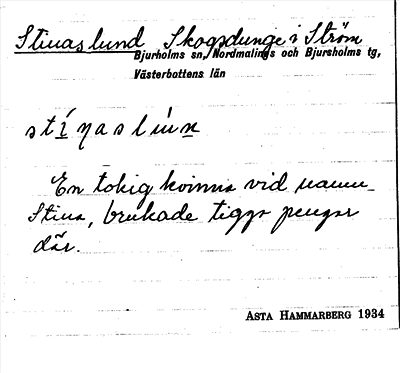 Stinaslund Skogsdunge i Ström
Bjurholms sn, Nordmalings och Bjurholms tg,
Västerbottens län
stínaslún
En tokig kvinna vid namn
Stina, brukade tigga pengar
där.
ASTA HAMMARBERG 1934